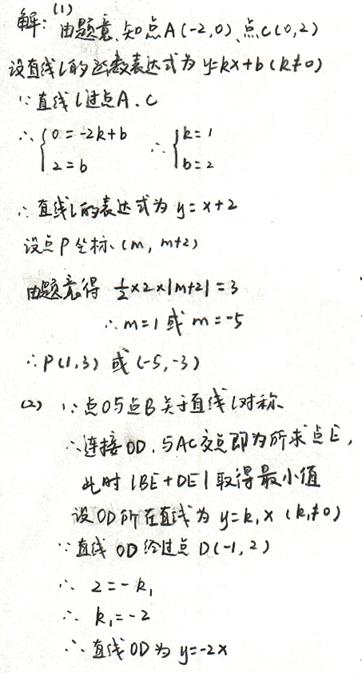 解：(1) 由题意、知点A(-2,0)、点C(0,2)
设直线l的函数表达式为 y=kx+b (k≠0)
∵直线l过点A、C
∴ {0=-2k+b ∴ {k=1
{2=b {b=2
∴直线l的表达式为 y=x+2
设点P坐标、(m, m+2)
由题意得 ½×2×|m+2|=3
∴m=1 或 m=-5
∴P(1,3) 或 (-5,-3)
(2) ∵点O与点B关于直线l对称、
∴连接OD、与AC交点即为所求点E,
此时 |BE+DE| 取得最小值
设OD所在直线为 y=k₁x (k₁≠0)
∵直线OD经过点D(-1,2)
∴ 2=-k₁
∴ k₁=-2
∴直线OD为 y=-2x